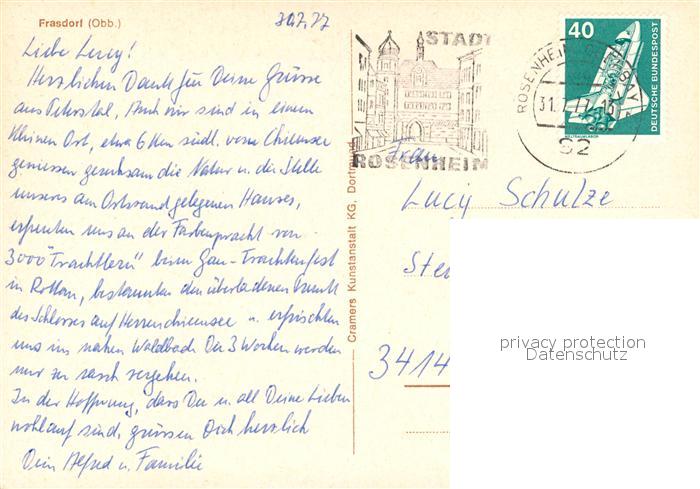 Frasdorf (Obb.)
30.7.77
Liebe Lucy!
Herzlichen Dank für Deine Grüsse
aus Peterstal, Auch wir sind in einem
kleinen Ort, etwa 6 Km südl. vom Chiemsee
geniessen geruhsam die Natur u. die Stille
unseres am Ortsrand gelegenen Hauses,
erfreuten uns an der Farbenpracht von
3000 "Trachtlern" beim Gau-Trachtenfest
in Rottau, bestaunten den überladenen Prunk
des Schlosses auf Herrenchiemsee u. erfrischten
uns im nahen Waldbad. Die 3 Wochen werden
nur zu rasch vergehen.
In der Hoffnung, dass Du u. all Deine Lieben
wohlauf sind, grüssen Dich herzlich
Dein Alfred u. Familie
Cramers Kunstanstalt KG, Dortmund
STADT
ROSENHEIM
ROSENHEIM
31.
82
40
DEUTSCHE BUNDESPOST
WELTRAUMLABOR
Frau
Lucy Schulze
Ste
3414
privacy protection
Datenschutz